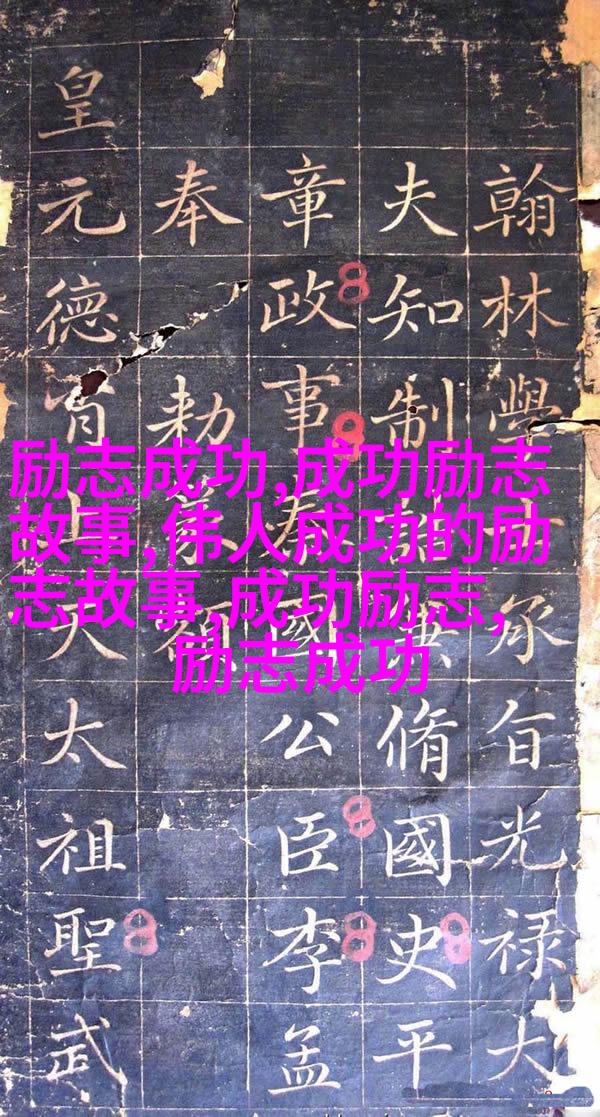 翰林學士承旨光禄大
夫知制脩國史平
章政事國公臣李孟
奉勑
皇
元德天太祖聖武
励志成功,成功励志
故事,伟人成功的励
志故事,成功励志,
励志成功